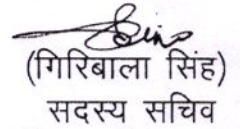 (गिरिबाला सिंह)
सदस्य सचिव